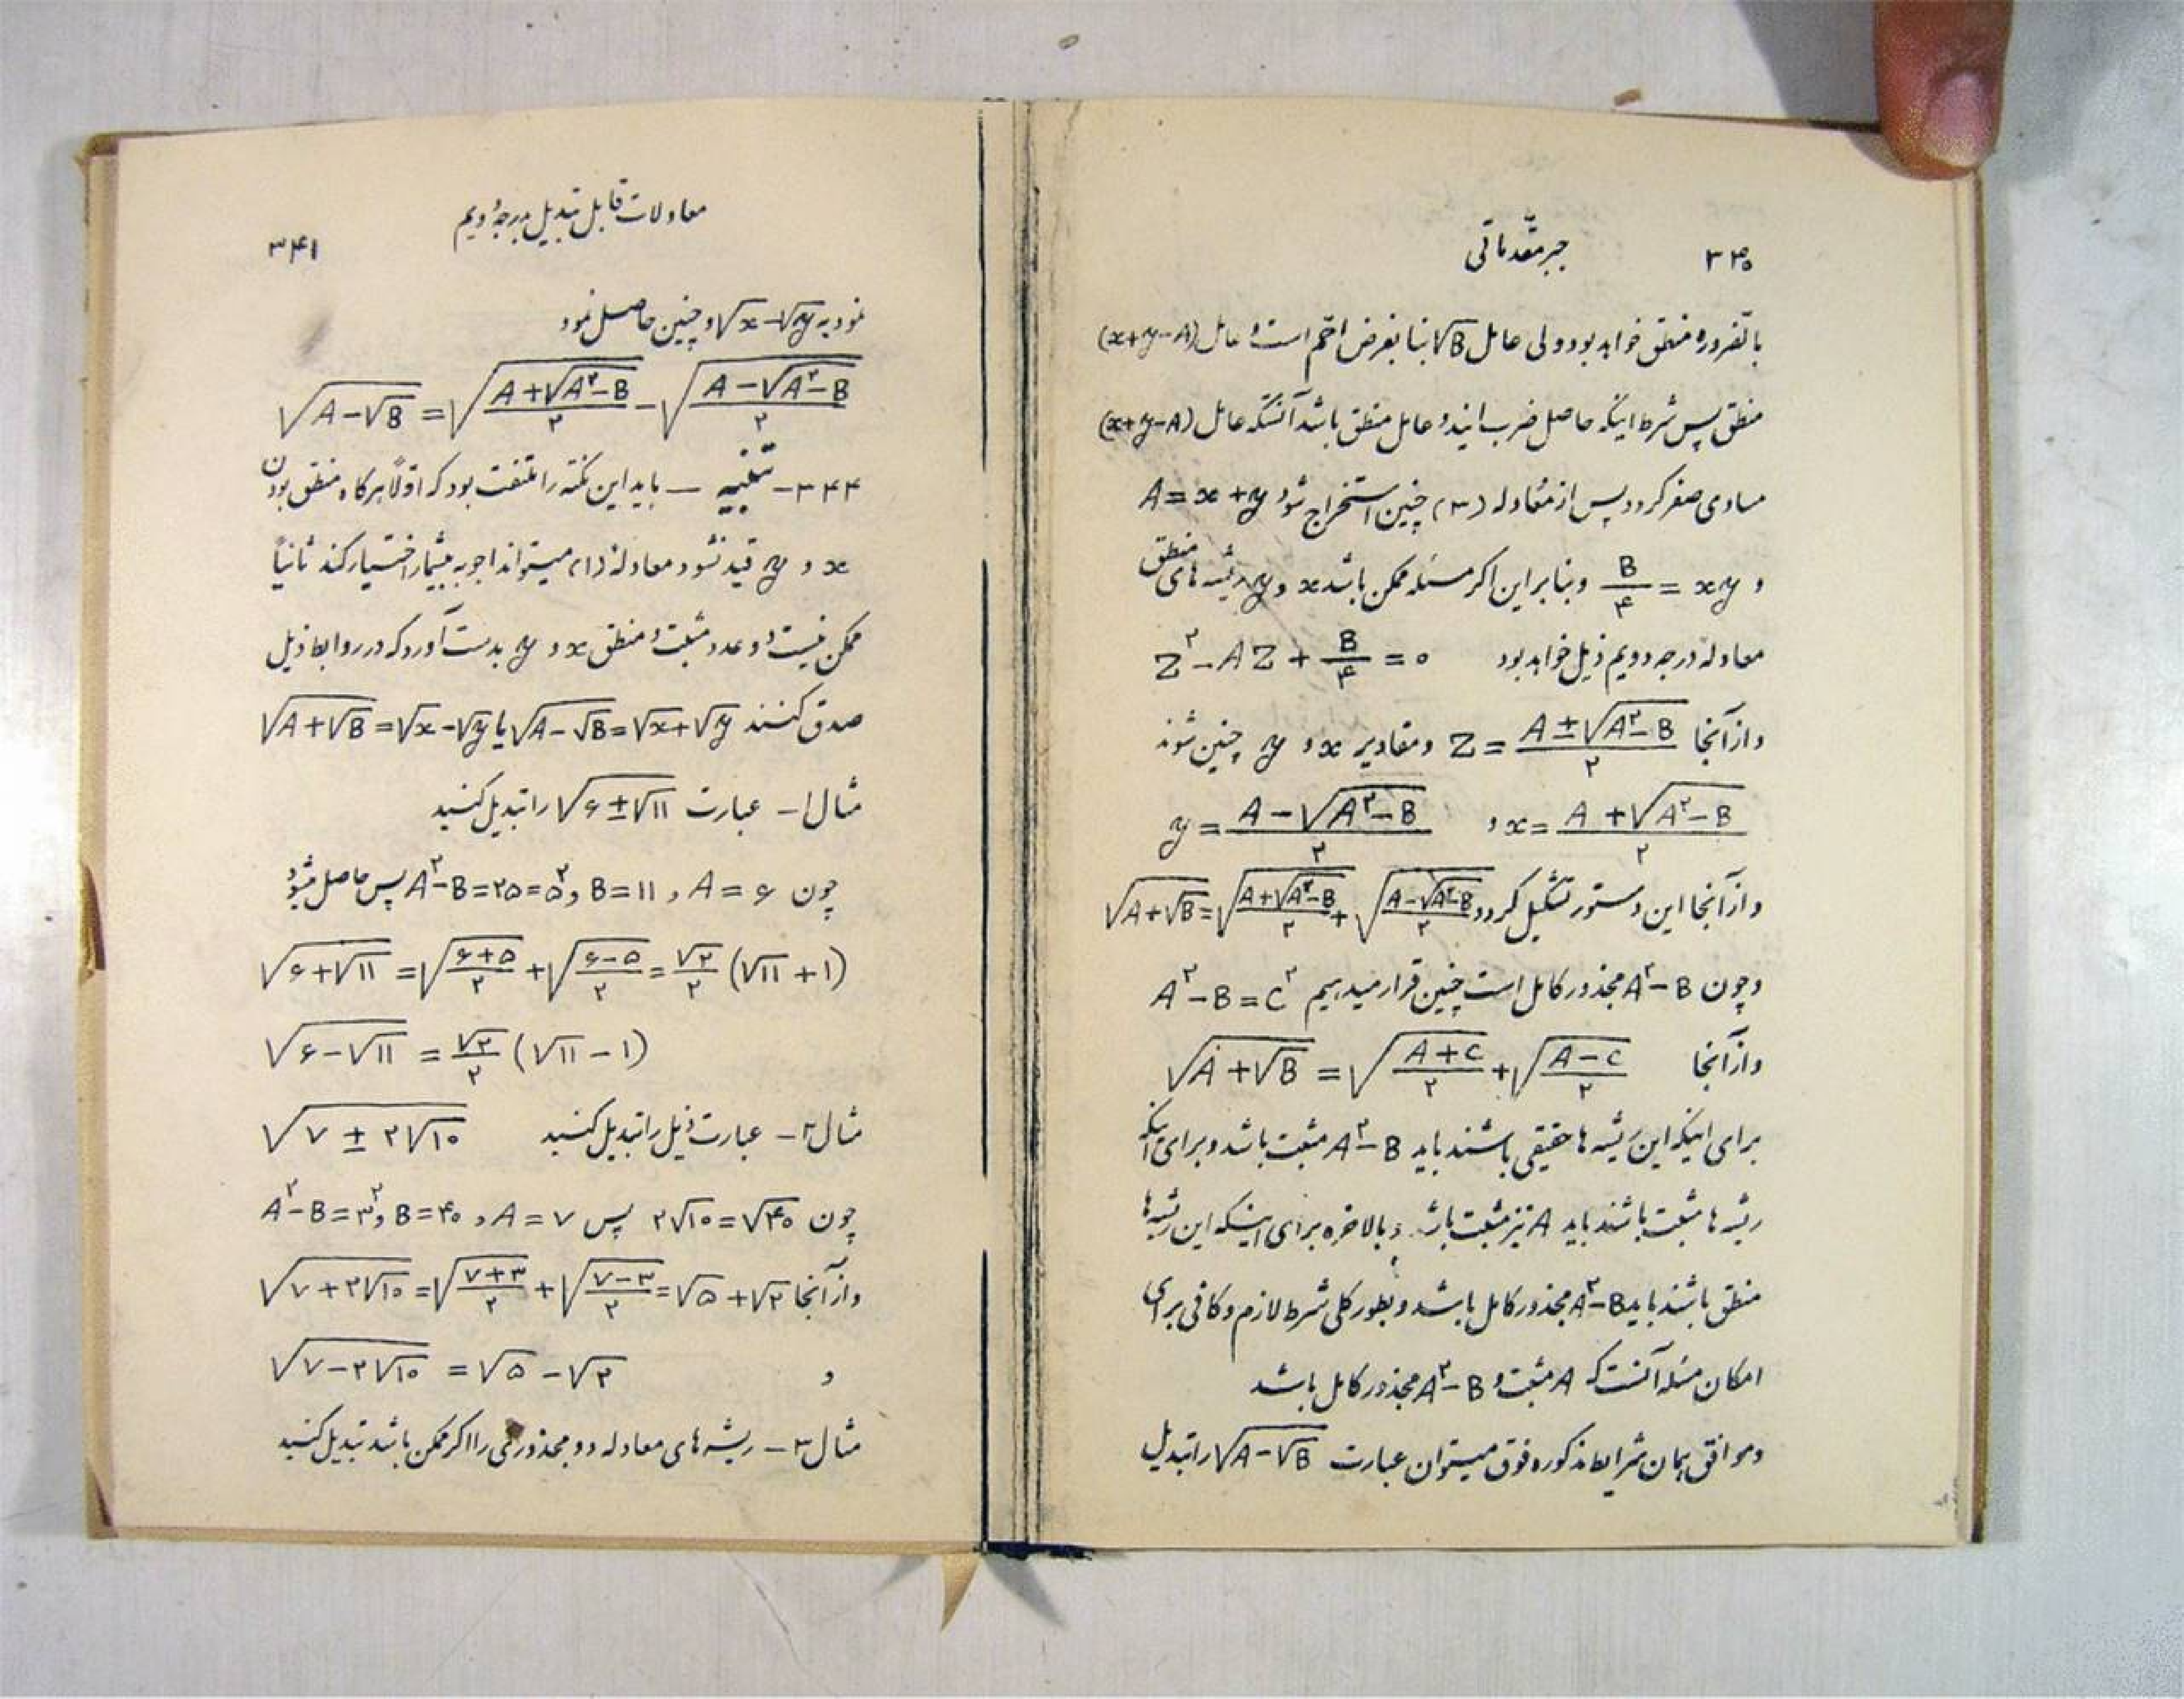 ۳۴۰ جبر مقدماتی
بالضروره منطق خواهد بود ولی عامل √B بنا بفرض اصم است و عامل (x+y−A)
منطق پس شرط اینکه حاصل ضرب ایندو عامل منطق باشد آنستکه عامل (x+y−A)
مساوی صفر گردد پس از معادله (۳) چنین استخراج شود A=x+y
و xy = B/۴ و بنابراین اگر مسئله ممکن باشد x و y ریشه های منطق
معادله درجه دویم ذیل خواهد بود Z²−AZ+B/۴=۰
و از آنجا Z=(A±√(A²−B))/۲ و مقادیر x و y چنین شوند
x=(A+√(A²−B))/۲ و y=(A−√(A²−B))/۲
و از آنجا این دستور تشکیل گردد √(A+√B)=√((A+√(A²−B))/۲)+√((A−√(A²−B))/۲)
و چون A²−B مجذور کامل است چنین قرار میدهیم A²−B=C²
و از آنجا √(A+√B)=√((A+C)/۲)+√((A−C)/۲)
برای اینکه این ریشه ها حقیقی باشند باید A²−B مثبت باشد و برای اینکه
ریشه ها مثبت باشند باید A نیز مثبت باشد و بالاخره برای اینکه این ریشه ها
منطق باشند باید A²−B مجذور کامل باشد و بطور کلی شرط لازم و کافی برای
امکان مسئله آنست که A مثبت و A²−B مجذور کامل باشد
و موافق همان شرایط مذکوره فوق میتوان عبارت √(A−√B) را تبدیل
معادلات قابل تبدیل بدرجه دویم ۳۴۱
نمود به √x−√y و چنین حاصل نمود
√(A−√B)=√((A+√(A²−B))/۲)−√((A−√(A²−B))/۲)
۳۴۴− تنبیه — باید این نکته را ملتفت بود که اولاً هرگاه منطق بودن
x و y قید نشود معادله (۱) میتواند اجوبه بیشمار اختیار کند ثانیاً
ممکن نیست دو عدد مثبت و منطق x و y بدست آورد که در روابط ذیل
صدق کنند √(A−√B)=√x+√y یا √(A+√B)=√x−√y
مثال ۱− عبارت √(۶±√۱۱) را تبدیل کنید
چون A=۶ و B=۱۱ و A²−B=۲۵=۵² پس حاصل میشود
√(۶+√۱۱)=√((۶+۵)/۲)+√((۶−۵)/۲)=√۲/۲(√۱۱+۱)
√(۶−√۱۱)=√۲/۲(√۱۱−۱)
مثال ۲− عبارت ذیل را تبدیل کنید √(۷±۲√۱۰)
چون ۲√۱۰=√۴۰ پس A=۷ و B=۴۰ و A²−B=۳²
و از آنجا √(۷+۲√۱۰)=√((۷+۳)/۲)+√((۷−۳)/۲)=√۵+√۲
و √(۷−۲√۱۰)=√۵−√۲
مثال ۳− ریشه های معادله دو مجذوری را اگر ممکن باشد تبدیل کنید